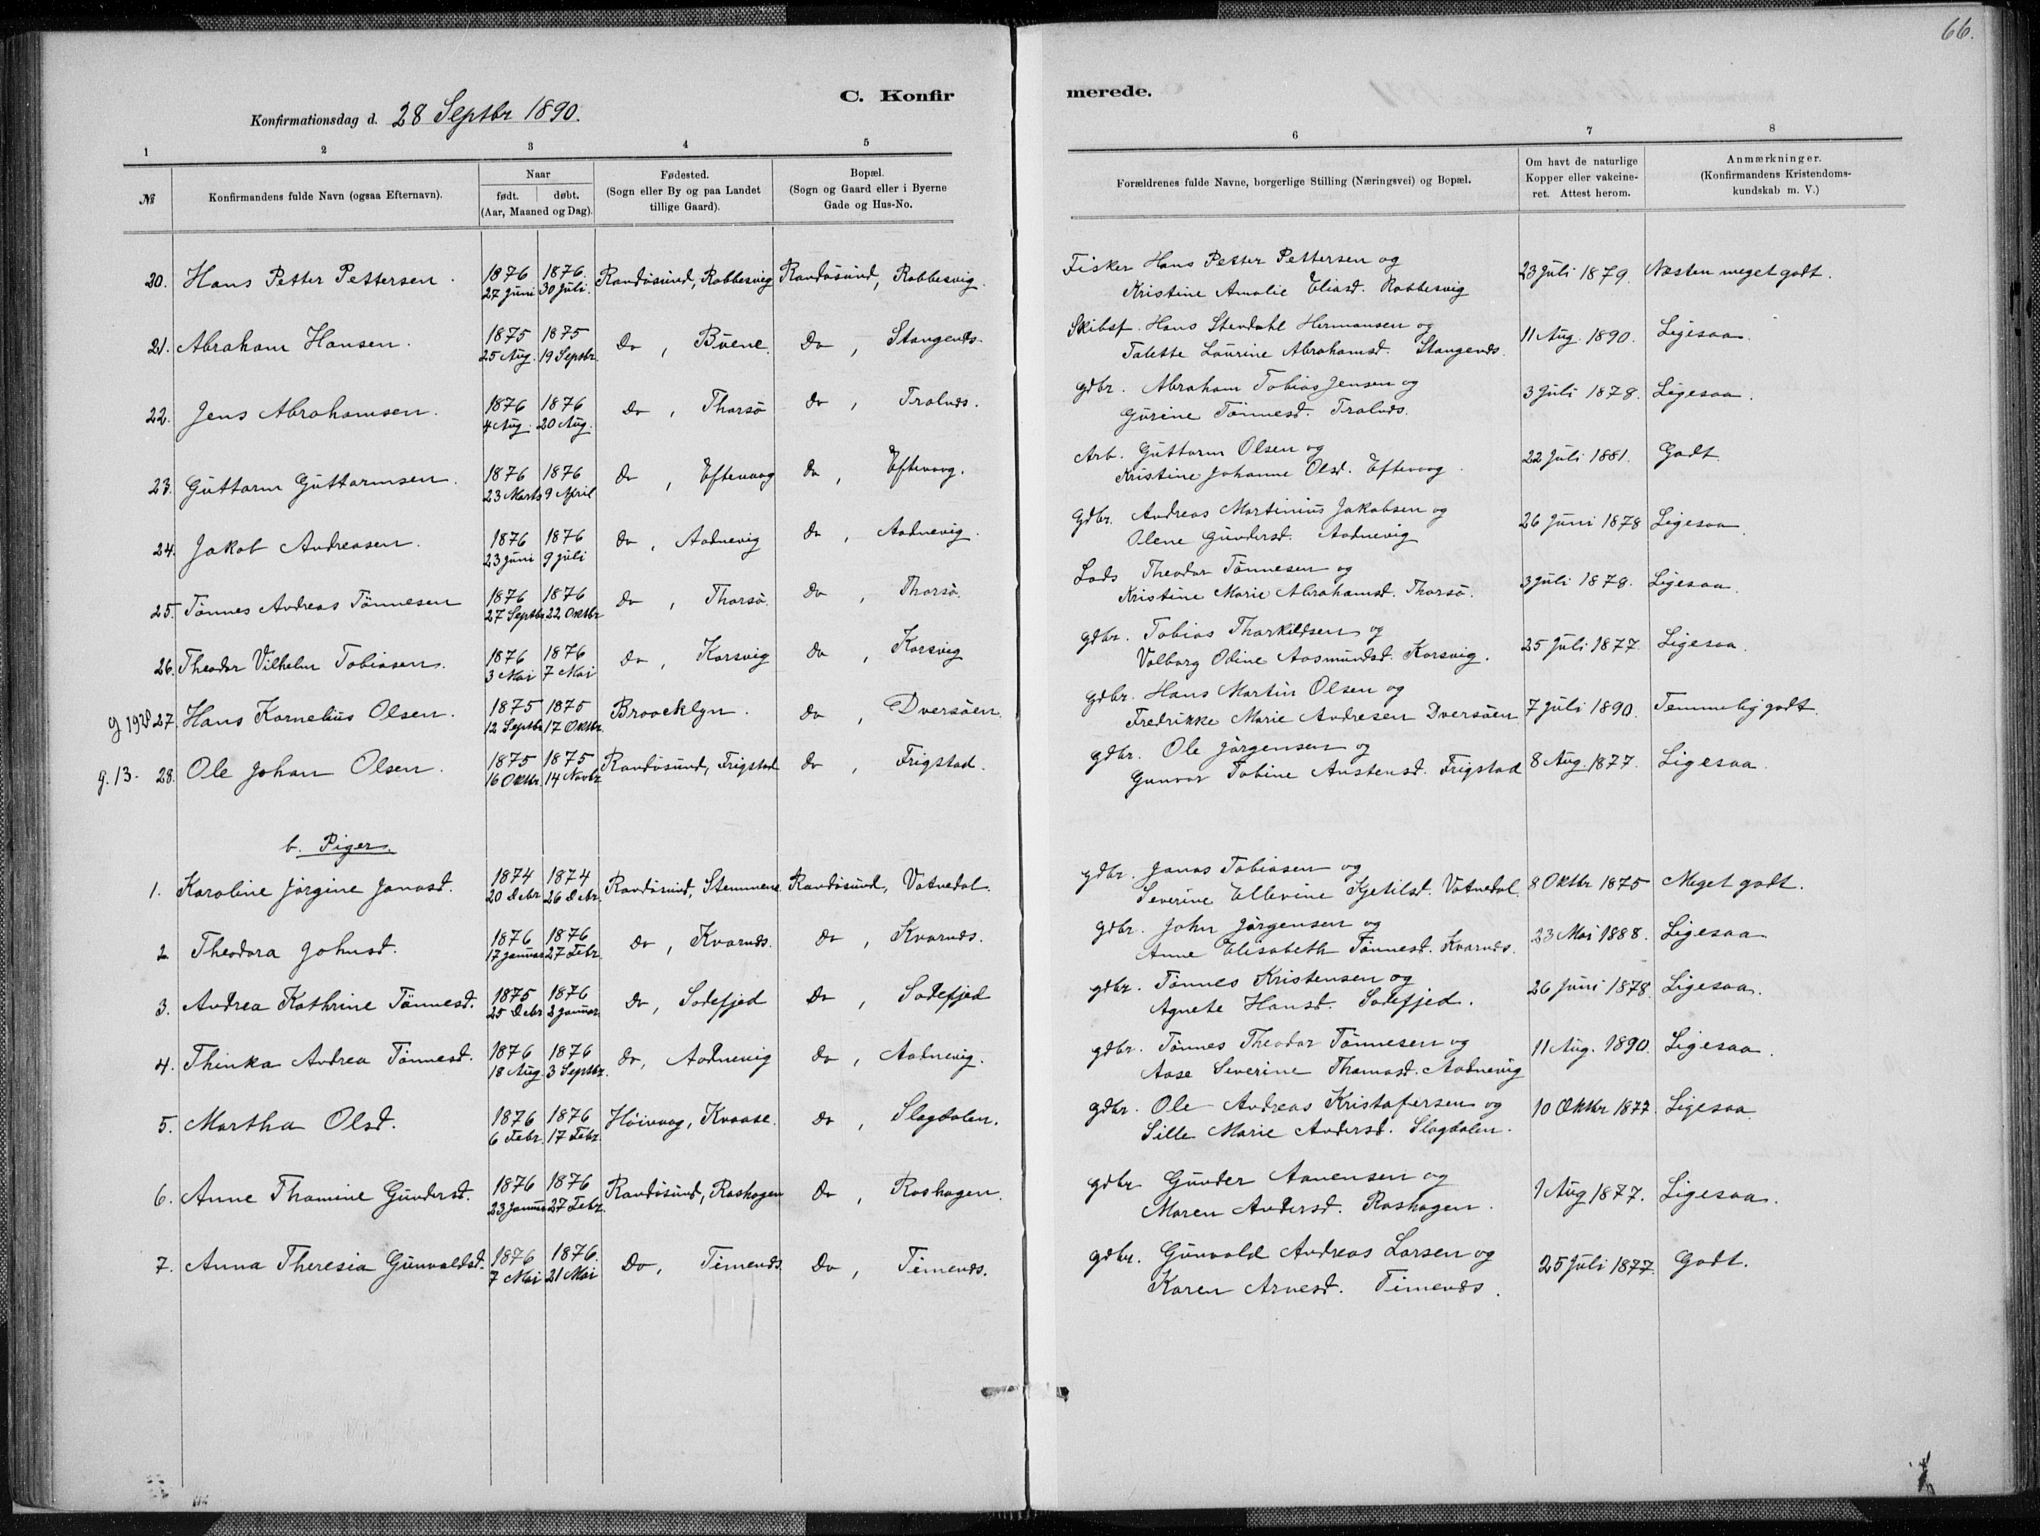 66.
C. Konfirmerede.
Konfirmationsdag d. 28 Septbr 1890.
1 2 3 4 5 6 7 8
№ Konfirmandens fulde Navn (ogsaa Efternavn). Naar født. døbt. (Aar, Maaned og Dag). Fødested. (Sogn eller By og paa Landet tillige Gaard). Bopæl. (Sogn og Gaard eller i Byerne Gade og Hus-No. Forældrenes fulde Navne, borgerlige Stilling (Næringsvei) og Bopæl. Om havt de naturlige Kopper eller vakcineret. Attest herom. Anmærkninger. (Konfirmandens Kristendomskundskab m. V.)
20. Hans Petter Pettersen. 1876 27 Juni 1876. 30 Juli. Randøsund, Robbesvig Randøsund, Robbesvig. Fisker Hans Petter Pettersen og Kristine Amalie Eliasd. Robbesvig 23 Juli 1879. Næsten meget godt.
21. Abraham Hansen. 1875 25 Aug. 1875 19 Septbr. Do, Buene. Do, Stangenæs. Skibsf. Hans Stendahl Hermansen og Talette Laurine Abrahamsd. Stangenæs. 11 Aug. 1890. Ligesaa.
22. Jens Abrahamsen. 1876 4 Aug. 1876 20 Aug. Do, Thorsø Do, Tralnæs. gdbr. Abraham Tobias Jensen og Gurine Tønnesd. Tralnæs. 3 Juli 1878. Ligesaa.
23. Guttorm Guttormsen. 1876 23 Marts 1876 9 April Do, Eftevaag Do, Eftevaag. Arb. Guttorm Olsen og Kristine Johanne Olsd. Eftevaag. 22 Juli 1881. Godt.
24. Jakob Andreasen. 1876 23 Juni 1876 9 Juli Do, Aadnevig Do, Aadnevig. Gdbr. Andreas Martinius Jakobsen og Olene Gundersd. Aadnevig 26 Juni 1878 Ligesaa
25. Tønnes Andreas Tønnesen 1876 27 Septbr. 1876 22 Oktbr Do, Thorsø. Do, Thorsø. Lods Theodor Tønnesen og Kristine Marie Abrahamsd. Thorsø. 3 Juli 1878. Ligesaa.
26. Theodor Vilhelm Tobiasen. 1876 3 Mai 1876 7 Mai Do, Korsvig Do, Korsvig gdbr. Tobias Tharkildsen og Valborg Odine Aasmundsd. Korsvig. 25 Juli 1877. Ligesaa.
g 1928 27. Hans Kornelius Olsen. 1875 12 Septbr 1875 17 Oktbr. Broocklyn. Do, Dversøen. gdbr. Hans Martin Olsen og Fredrikke Marie Andresen Dversøen 7 Juli 1890. Temmelig godt.
g. 13. 28. Ole Johan Olsen. 1875 16 Oktbr. 1875 14 Novbr Randøsund, Frigstad Do, Frigstad. gdbr. Ole Jørgensen og Gunvor Tobine Austensd. Frigstad 8 Aug. 1877. Ligesaa.
b. Piger.
1. Karoline Jørgine Jonasd. 1874 20 Debr 1874 26 Debr. Randøsund, Stemmene Randøsund, Vatnedal. gdbr. Jonas Tobiasen og Severine Ellevine Kjetilsd. Vatnedal. 8 Oktbr 1875 Meget godt.
2 Theodora Johnsd. 1876 17 Januar 1876 27 Febr. Do, Kvarnæs. Do, Kvarnæs. gdbr. John Jørgensen og Anne Elisabeth Tønnesd. Kvarnæs. 23 Mai 1888. Ligesaa
3. Andrea Kathrine Tønnesd. 1875 25 Debr 1876 2 Januar. Do, Sodefjed Do, Sodefjed gdbr. Tønnes Kristensen og Agnete Hansd. Sodefjed. 26 Juni 1878. Ligesaa.
4. Thinka Andrea Tønnesd. 1876 18 Aug. 1876 3 Septbr. Do, Aadnevig Do, Aadnevig. gdbr. Tønnes Theodor Tønnesen og Aase Severine Thomasd. Aadnevig 11 Aug. 1890. Ligesaa.
5. Martha Olsd. 1876 6 Febr. 1876 17 Febr. Høivaag, Kvaase. Do, Slagdalen. gdbr. Ole Andreas Kristofersen og Sille Marie Andersd. Slagdalen. 10 Oktbr 1877. Ligesaa
6. Anne Thomine Gundersd. 1876 23 Januar 1876 27 Febr. Randøsund, Roshagen Do, Roshagen. gdbr Gunder Aanensen og Maren Andersd. Roshagen. 1 Aug 1877. Ligesaa.
7. Anna Theresia Gunvaldsd. 1876 7 Mai 1876. 21 Mai Do, Timenæs. Do, Timenæs. gdbr. Gunvald Andreas Larsen og Karen Arnesd. Timenæs. 25 Juli 1877. Godt.